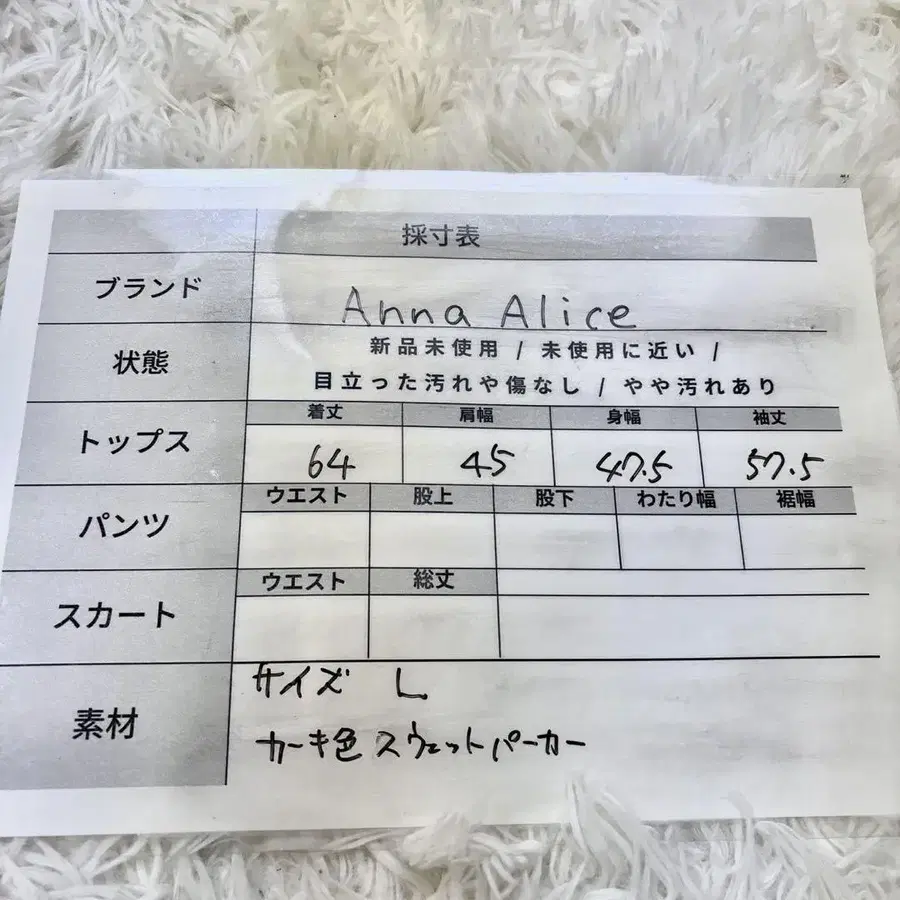 採寸表
ブランド Anna Alice
状態 新品未使用 / 未使用に近い /
目立った汚れや傷なし / やや汚れあり
トップス 着丈 肩幅 身幅 袖丈
64 45 47.5 57.5
パンツ ウエスト 股上 股下 わたり幅 裾幅
スカート ウエスト 総丈
素材 サイズ L
カーキ色スウェットパーカー